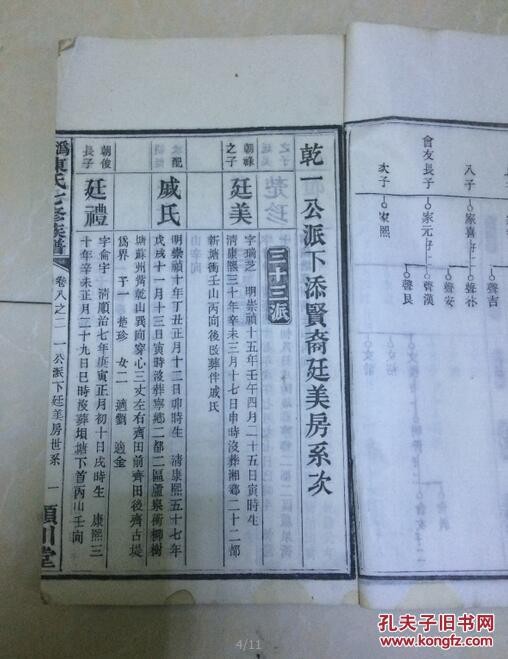 乾一公派下添賢裔廷美房系次
三十三派
朝祿之子
廷美
字瑞芝 明崇禎十五年壬午四月二十五日寅時生
清康熙三十年辛未三月十七日申時沒葬湘鄉二十二都
新塘衝壬山丙向後臥葬伴戚氏
配
戚氏
明崇禎十年丁丑正月十二日申時生 清康熙五十七年
戊戌十一月十三日寅時沒葬寧鄉二都二區蘆泉衝柳樹
塘蘇州背乾山巽向穿心三丈左右齊田前齊田後齊古堤
為界 子一 楚珍 女二 適劉 適金
朝俊長子
廷禮
字侖宇 清順治七年庚寅正月初十日戌時生 康熙三
十年辛未正月二十九日巳時沒葬塅塘下首丙山壬向
溈陳氏七修族譜
卷八之二 一公派下廷美房世系 一
潁川堂
聲吉
八子
家喜
聲木
聲安
會友長子
家元
聲漢
次子
家熙
聲艮
4/11
孔夫子旧书网
www.kongfz.com